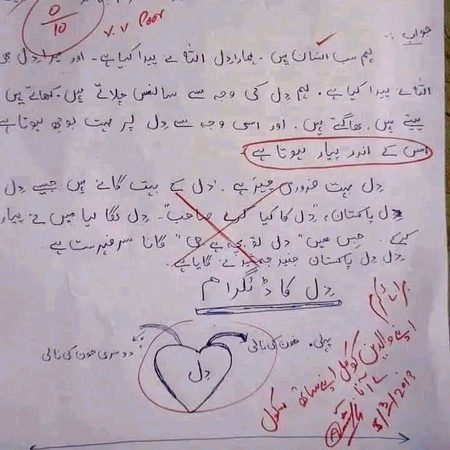 0/10
v.v Poor
جواب :.
ہم سب انسان ہیں۔ ہمارا دل اللہ نے پیدا کیا ہے۔ اور میرا دل بھی
اللہ نے پیدا کیا ہے۔ ہم دل کی وجہ سے سانس چلاتے ہیں۔ کھاتے ہیں
پیتے ہیں۔ بھاگتے ہیں۔ اور اسی وجہ سے دل پر بہت بوجھ ہوتا ہے
اس کے اندر پیار ہوتا ہے
دل بہت ضروری چیز ہے۔ دل کے بہت گانے ہیں جیسے دل
دل پاکستان، "دل کا کیا کریں صاحب"۔ دل لگا لیا میں نے پیار
کرکے۔ جس میں "دل تو بچہ ہے جی" گانا سر فہرست ہے۔
دل دل پاکستان جنید جمشید نے گایا ہے۔
دل کا ڈائیگرام
پہلی خون کی نالی
دوسری خون کی نالی
دل
اپنے والدین کو کل اپنے ساتھ سکول